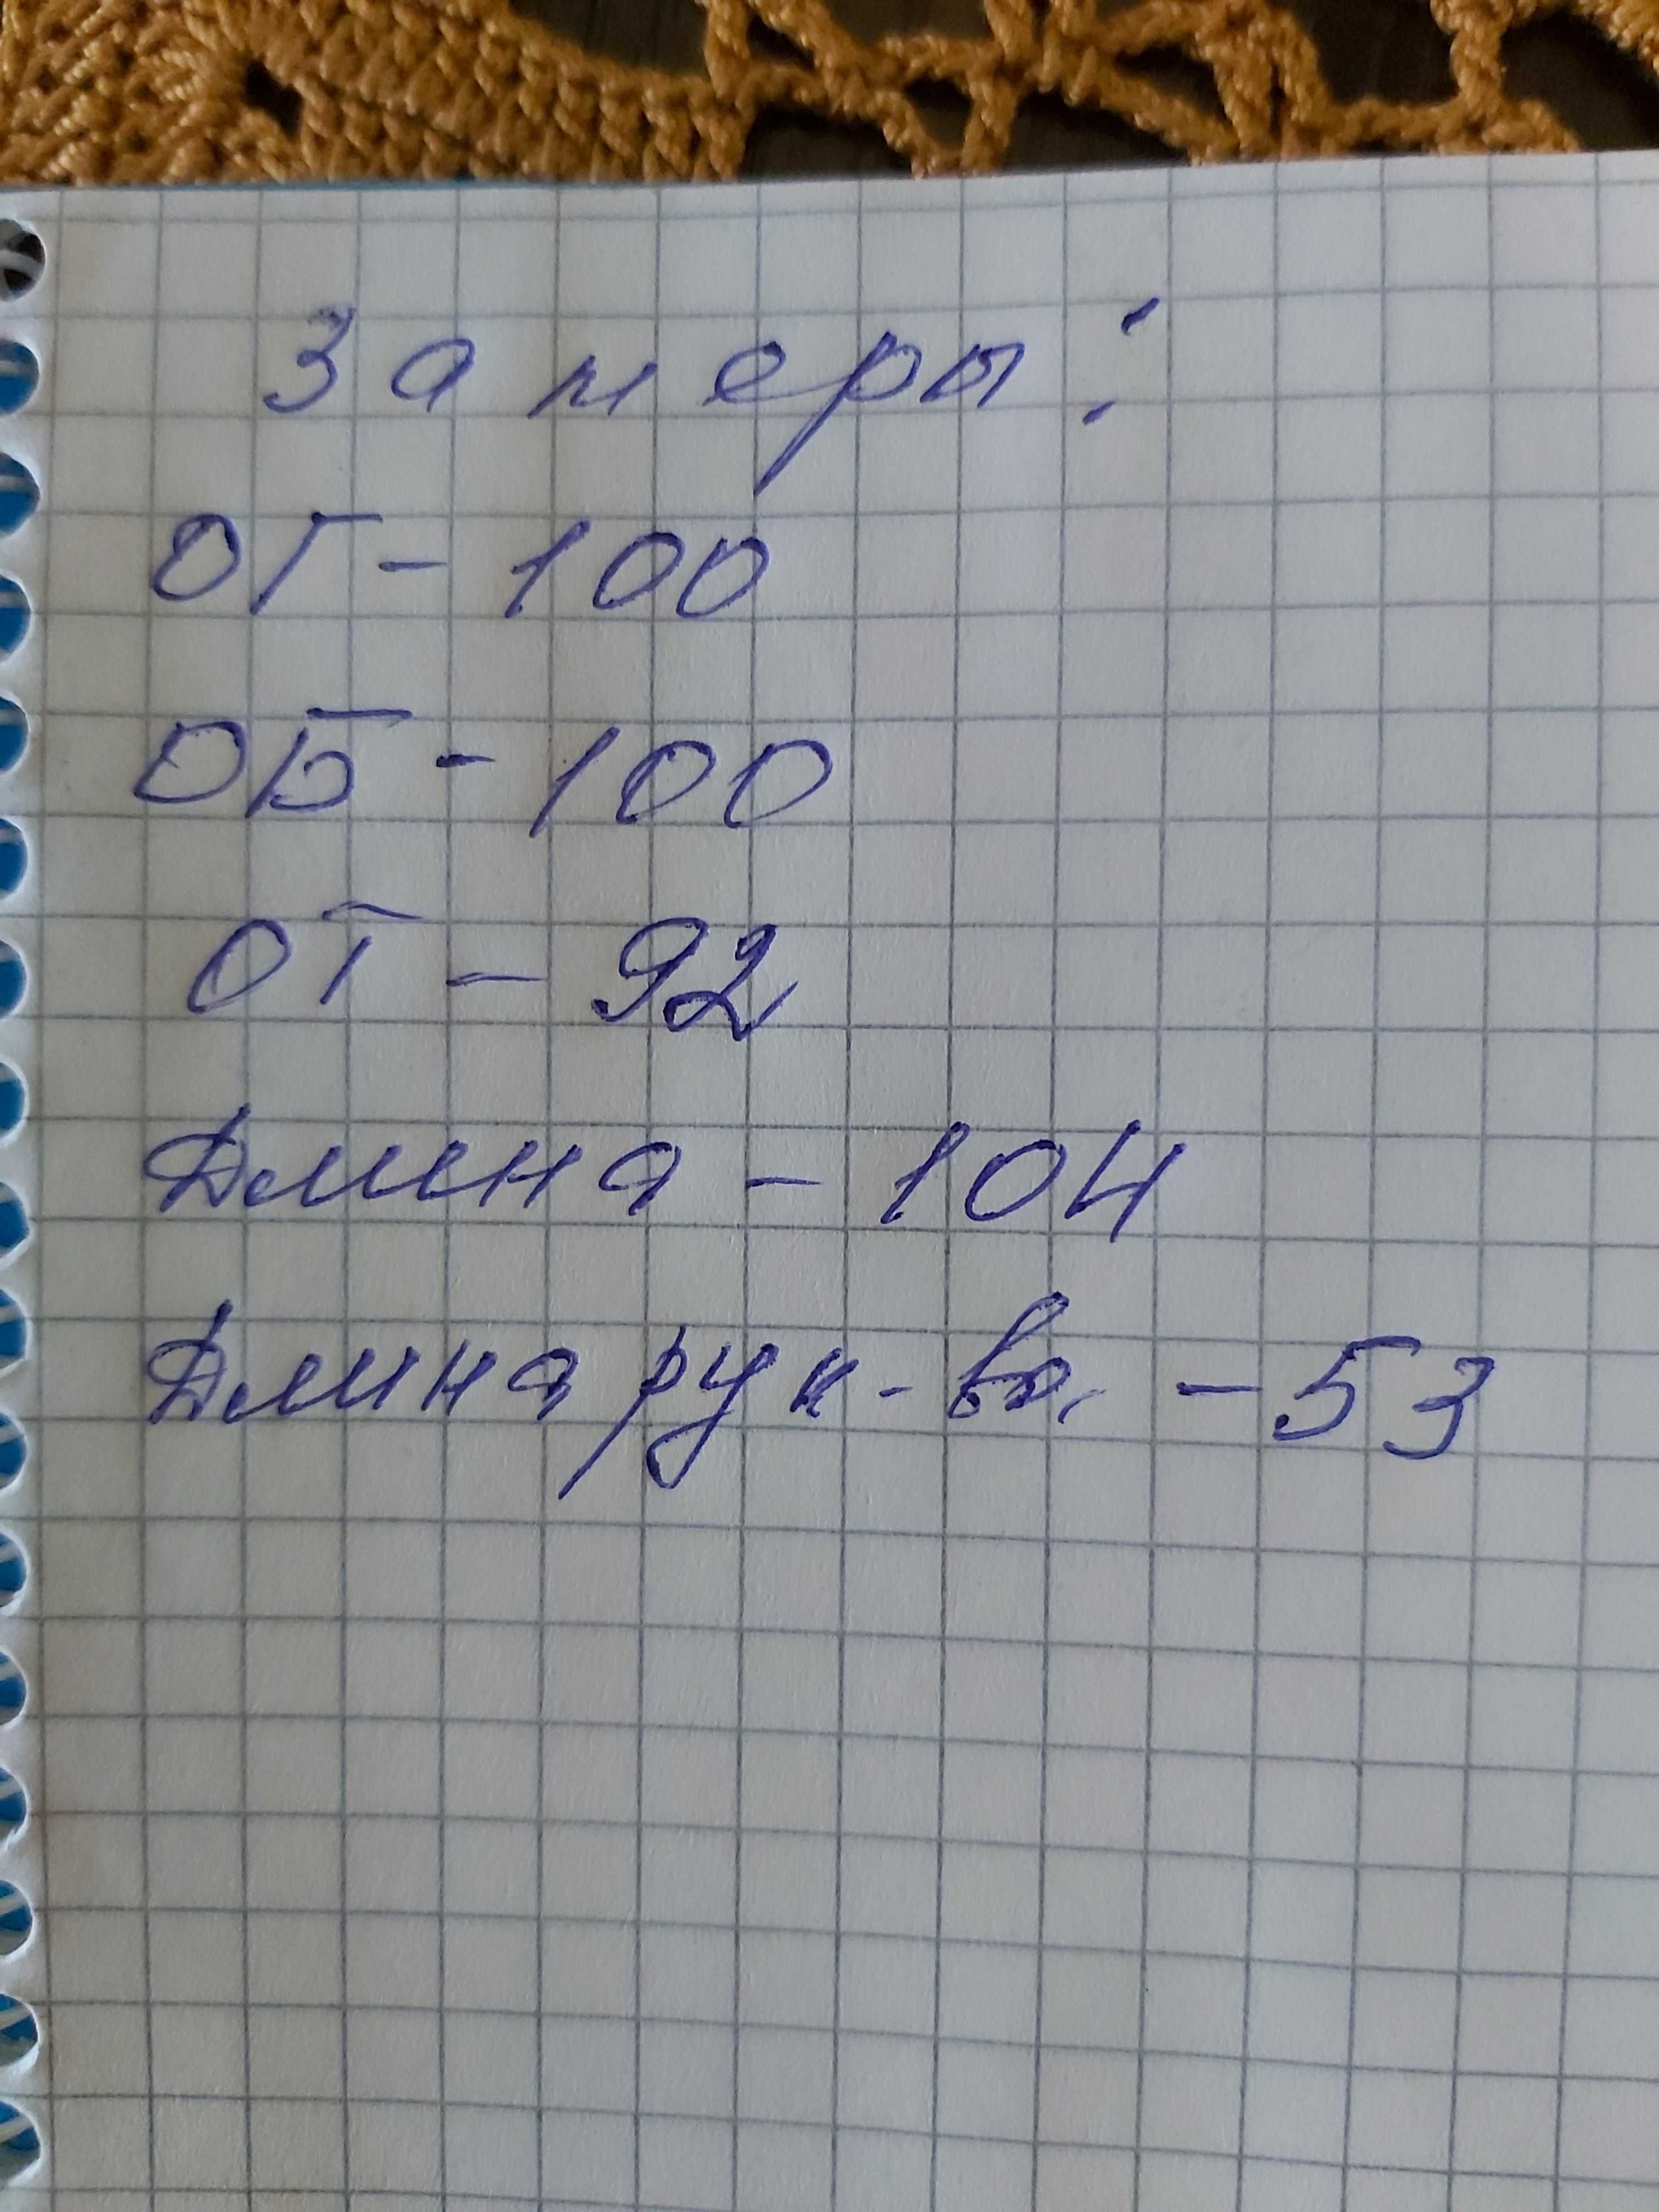 Замеры:
ОГ - 100
ОБ - 100
ОТ - 92
Длина - 104
Длина рук-ва. - 53